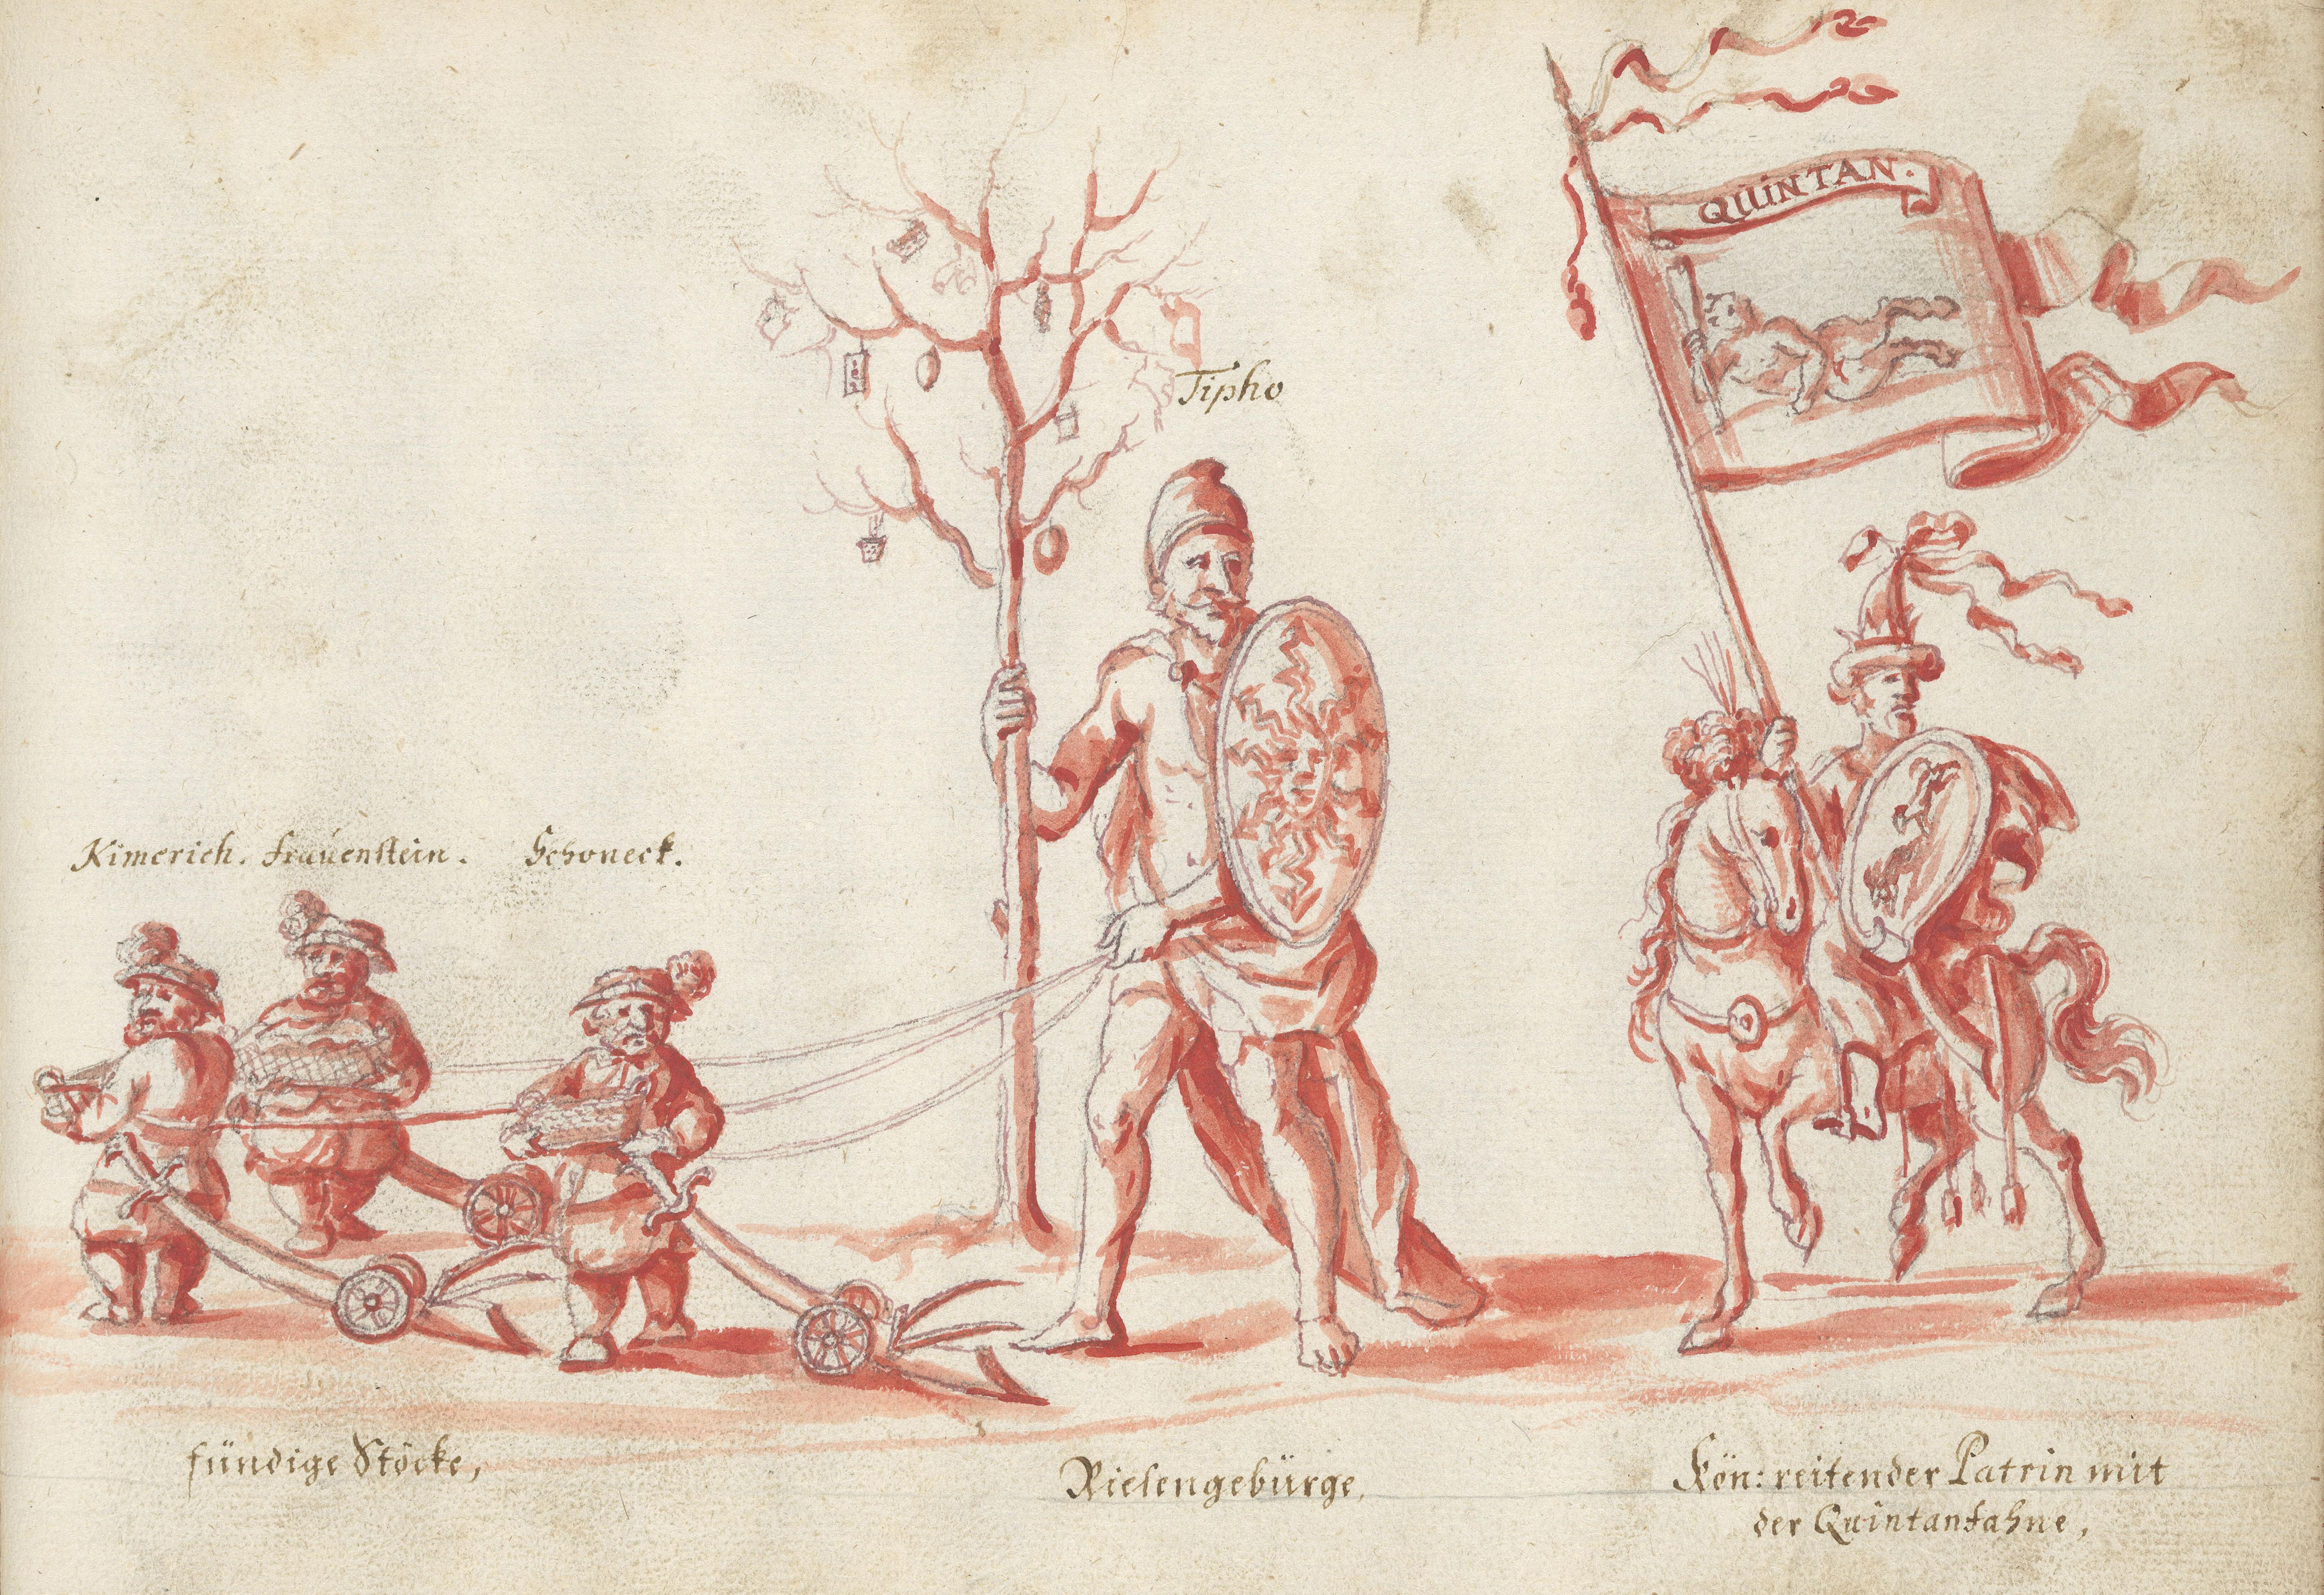 QUINTAN.
Tipho
Kimerich. Frauenstein. Schoneck.
fündige Stöcke,
Riesengebürge,
Kön: reitender Patrin mit
der Quintanfahne,